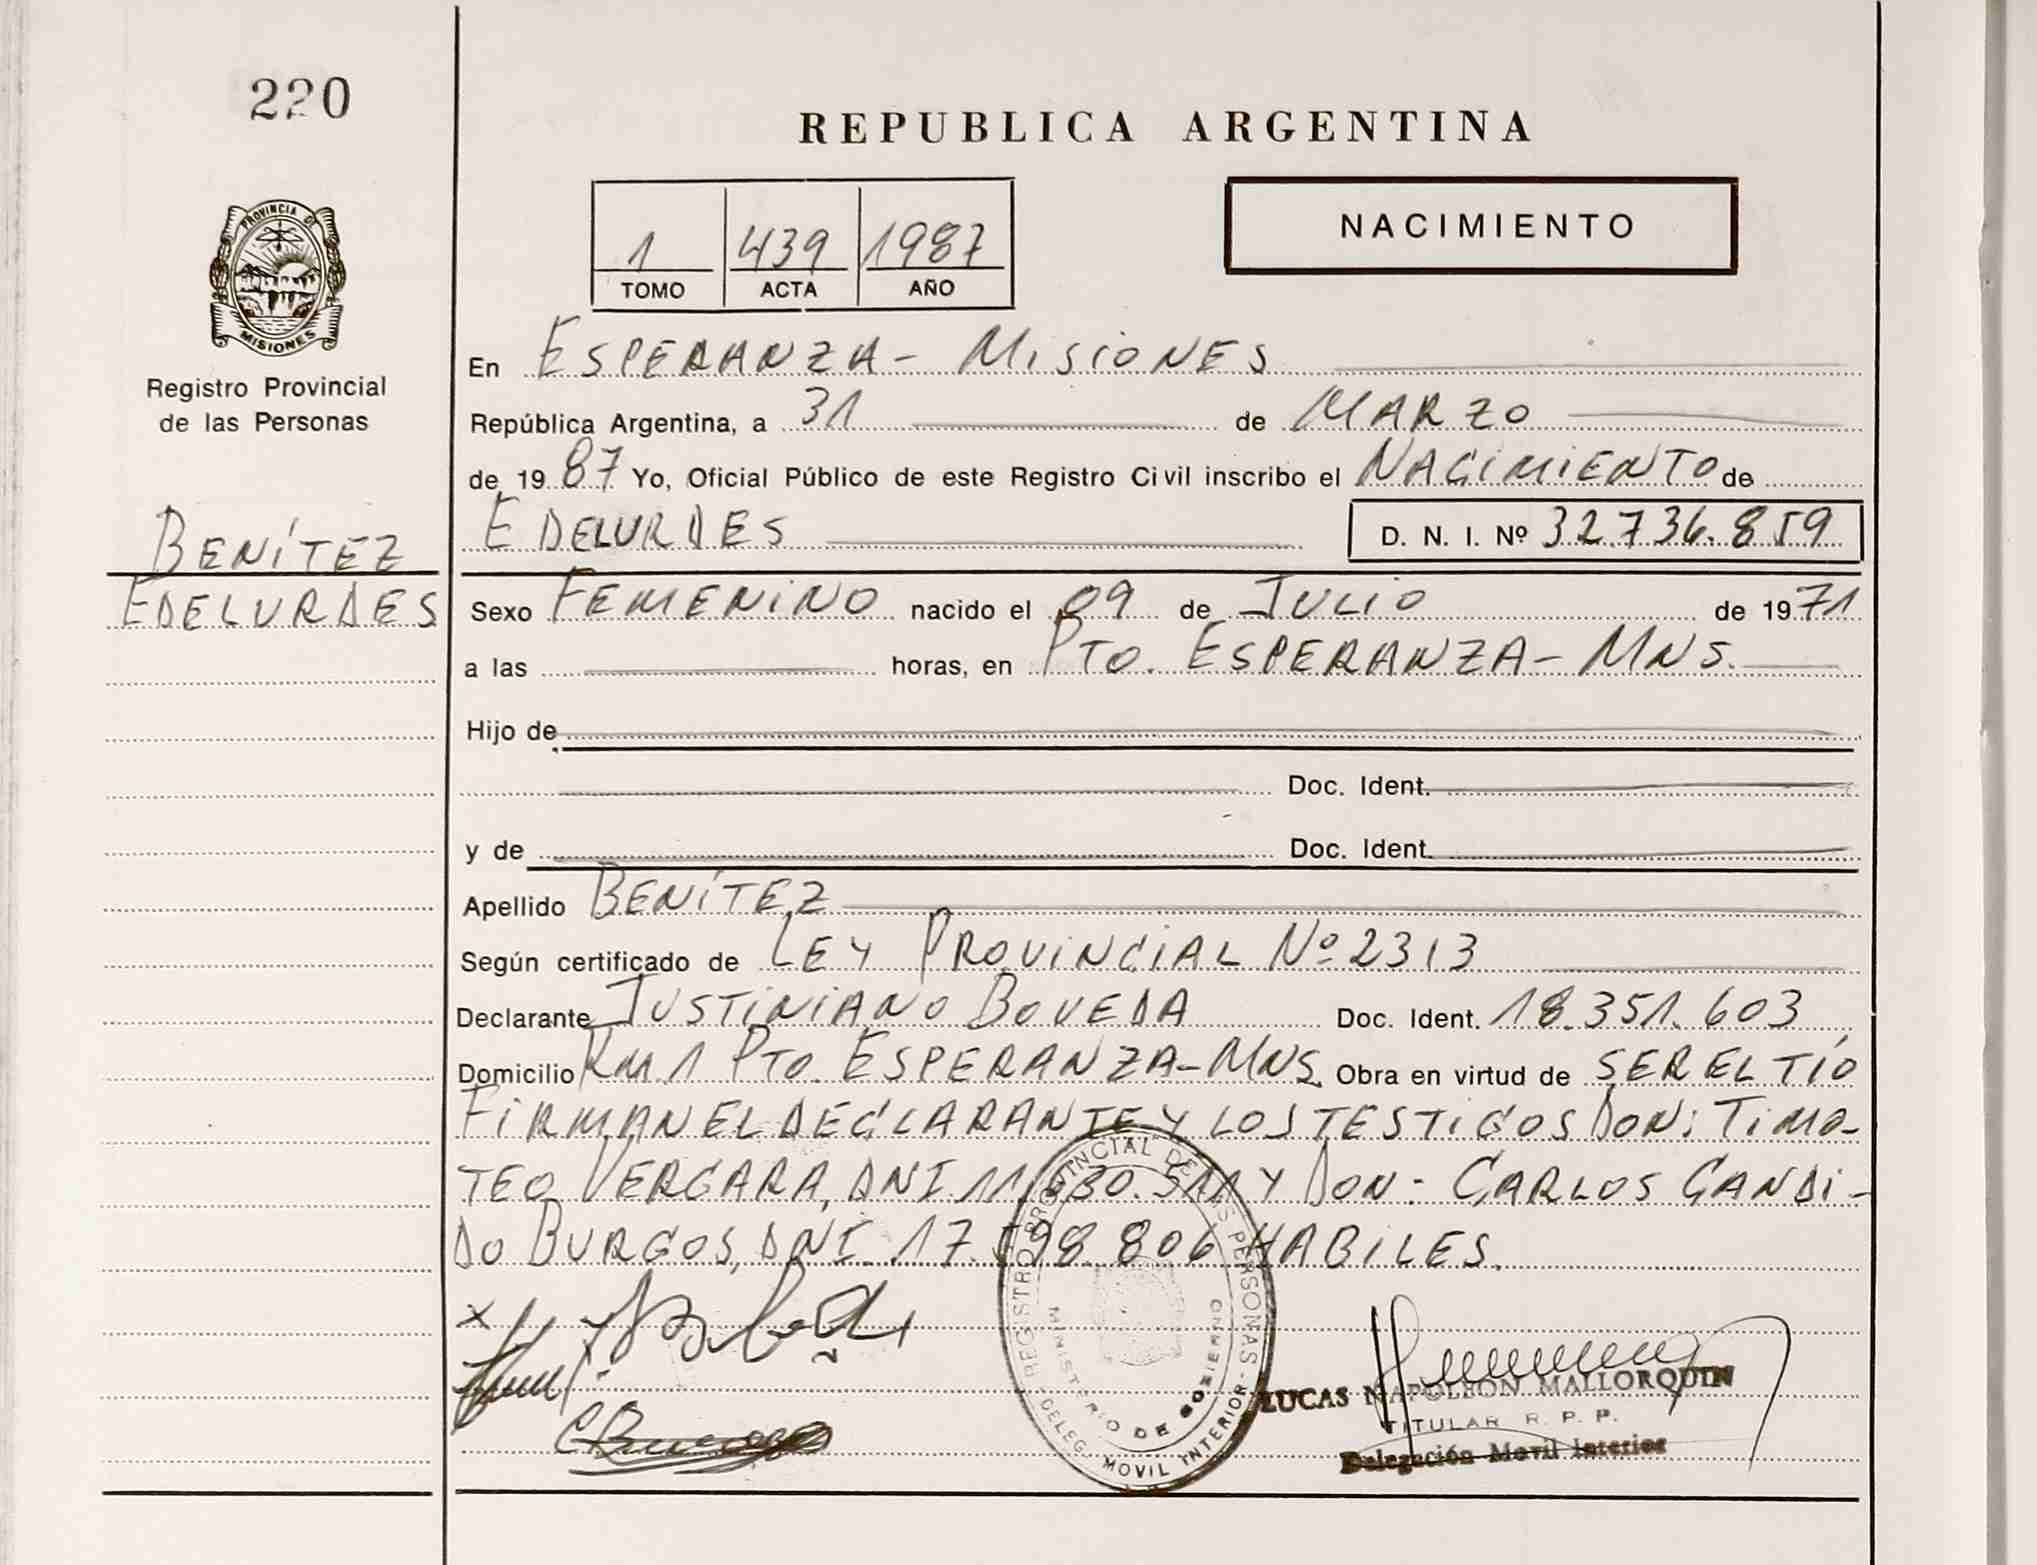 220
REPUBLICA ARGENTINA
1 439 1987
TOMO ACTA AÑO
NACIMIENTO
PROVINCIA DE
MISIONES
Registro Provincial
de las Personas
BENÍTEZ
EDELURDES
En ESPERANZA - MISIONES
República Argentina, a 31 de MARZO
de 1987 Yo, Oficial Público de este Registro Civil inscribo el NACIMIENTO de
EDELURDES D. N. I. Nº 32.736.859
Sexo FEMENINO nacido el 09 de JULIO de 1971
a las horas, en PTO. ESPERANZA - MNS.
Hijo de
Doc. Ident.
y de Doc. Ident.
Apellido BENÍTEZ
Según certificado de LEY PROVINCIAL Nº 2313
Declarante JUSTINIANO BOVEDA Doc. Ident. 18.351.603
Domicilio KM 1 PTO. ESPERANZA - MNS. Obra en virtud de SER EL TÍO
FIRMAN EL DECLARANTE Y LOS TESTIGOS DON: TIMO-
TEO VERGARA, DNI. 11. Y DON: CARLOS CANDI-
DO BURGOS, DNI. 17. 98.806 HABILES.
REGISTRO PROVINCIAL DE LAS PERSONAS
MINISTERIO DE GOBIERNO
DELEG. MOVIL INTERIOR
C Burgos
LUCAS NAPOLEON MALLORQUIN
TITULAR R. P. P.
Delegación Movil Interior